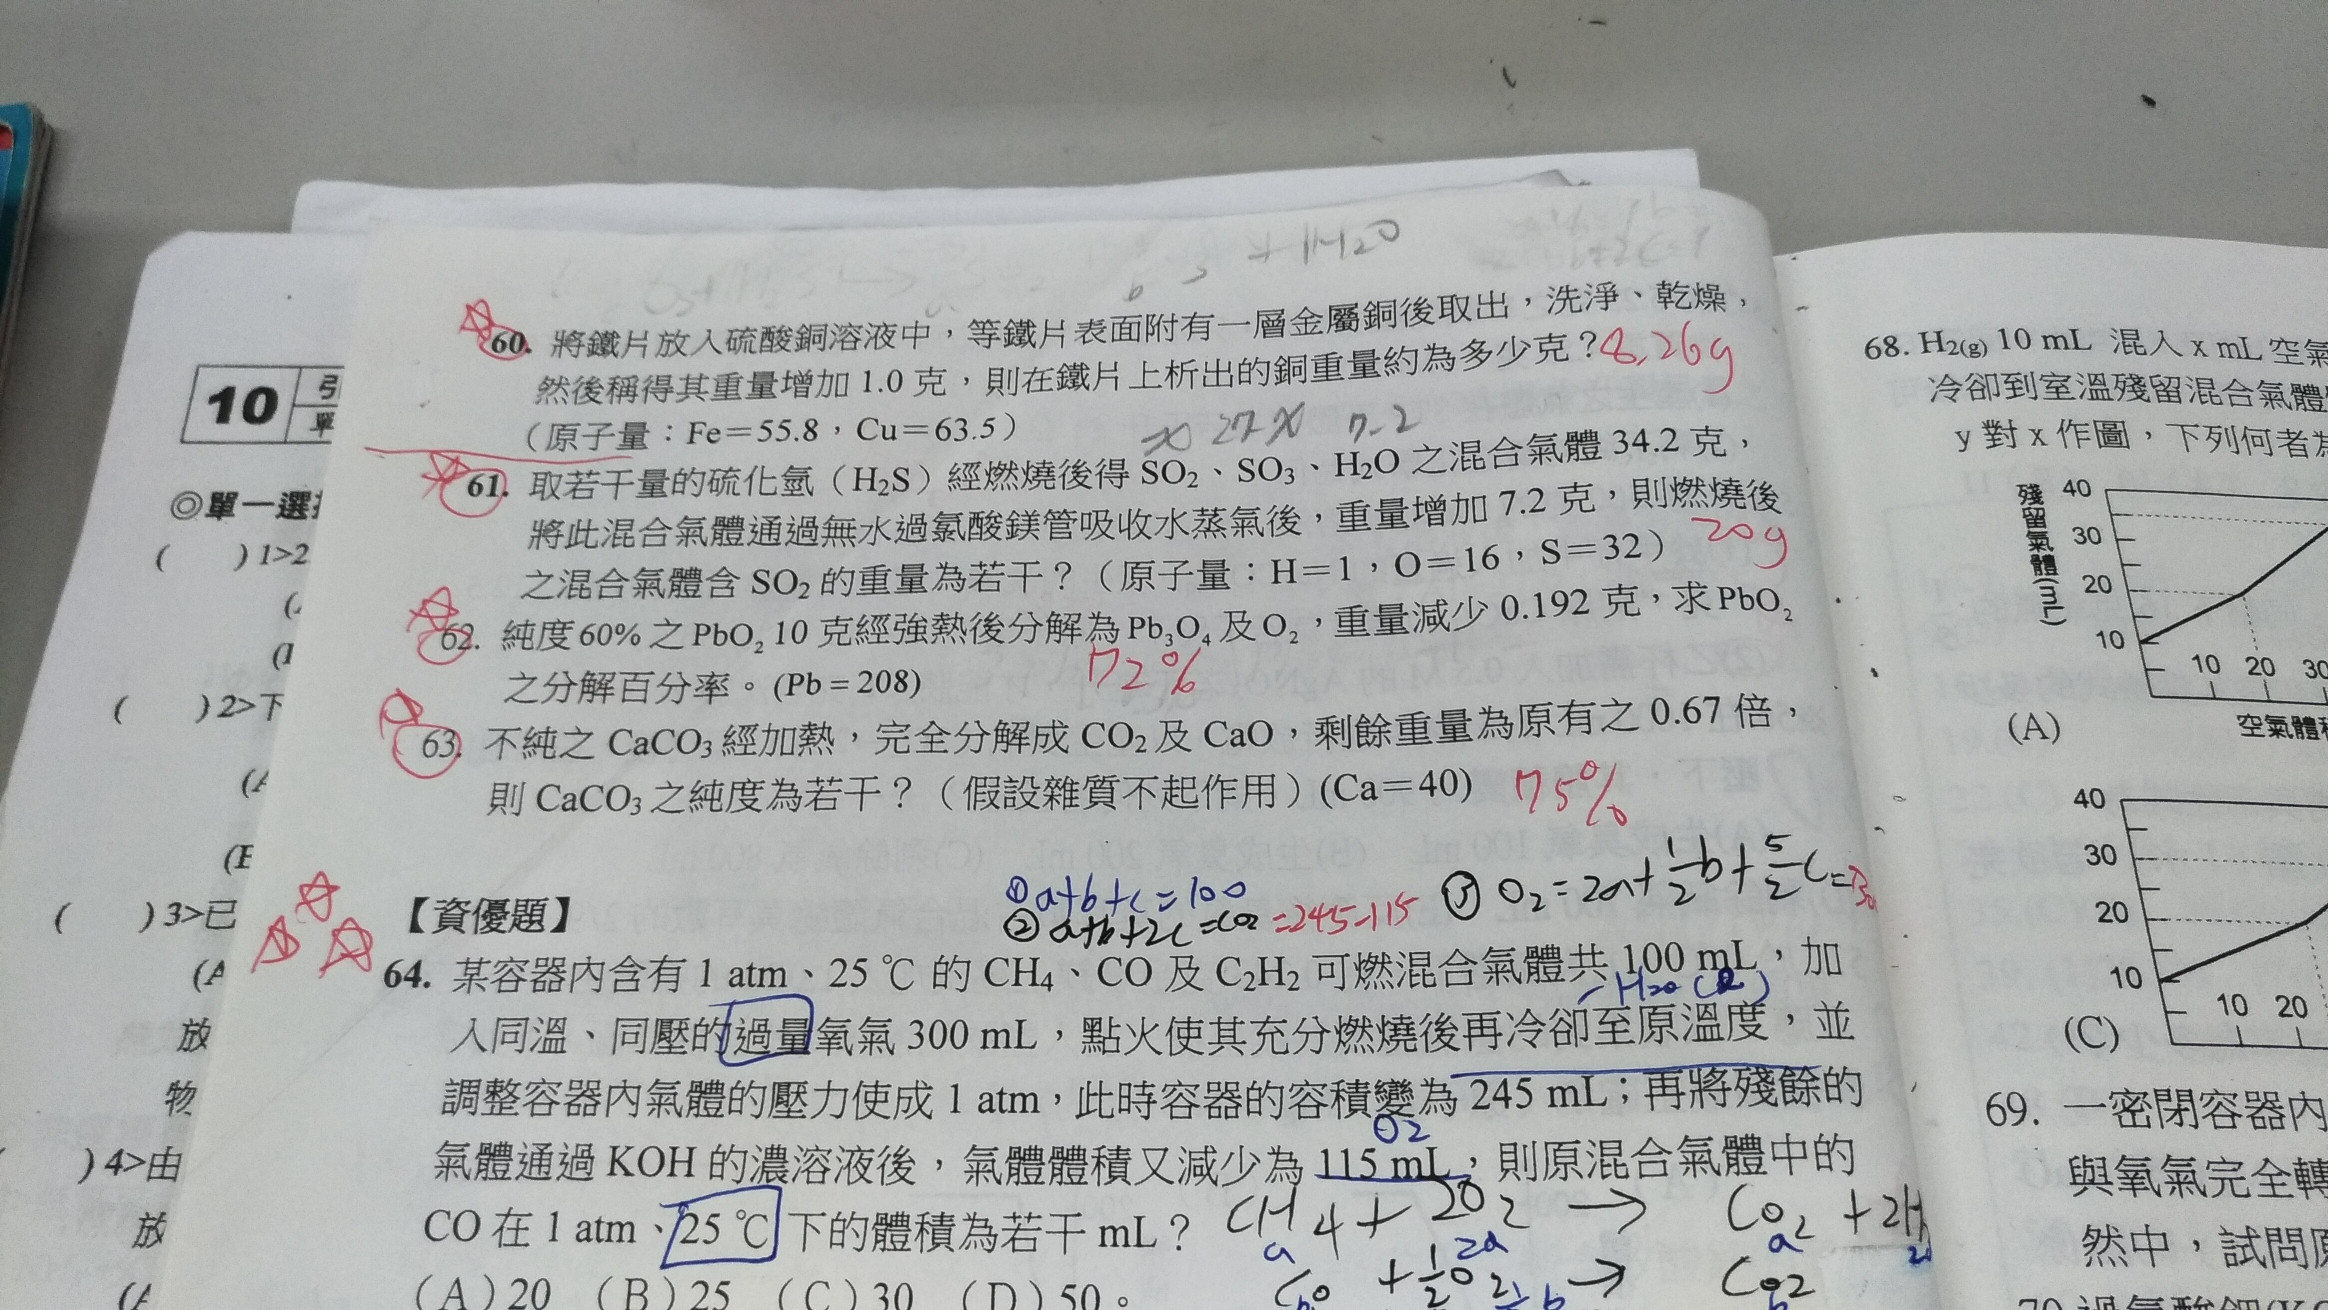 + H2O
60. 將鐵片放入硫酸銅溶液中，等鐵片表面附有一層金屬銅後取出，洗淨、乾燥，
然後稱得其重量增加 1.0 克，則在鐵片上析出的銅重量約為多少克？8.26g
（原子量：Fe＝55.8，Cu＝63.5）
7.2
61. 取若干量的硫化氫（H2S）經燃燒後得 SO2、SO3、H2O 之混合氣體 34.2 克，
將此混合氣體通過無水過氯酸鎂管吸收水蒸氣後，重量增加 7.2 克，則燃燒後
之混合氣體含 SO2 的重量為若干？（原子量：H＝1，O＝16，S＝32） 20g
62. 純度 60% 之 PbO2 10 克經強熱後分解為 Pb3O4 及 O2，重量減少 0.192 克，求 PbO2
之分解百分率。(Pb = 208) 72%
63. 不純之 CaCO3 經加熱，完全分解成 CO2 及 CaO，剩餘重量為原有之 0.67 倍，
則 CaCO3 之純度為若干？（假設雜質不起作用）(Ca＝40) 75%
① a+b+c=100
② a+b+2c=CO2 =245-115
③ O2=2a+1/2b+5/2c=
【資優題】
64. 某容器內含有 1 atm、25 ℃ 的 CH4、CO 及 C2H2 可燃混合氣體共 100 mL，加
-H2O(ℓ)
入同溫、同壓的過量氧氣 300 mL，點火使其充分燃燒後再冷卻至原溫度，並
調整容器內氣體的壓力使成 1 atm，此時容器的容積變為 245 mL；再將殘餘的
O2
氣體通過 KOH 的濃溶液後，氣體體積又減少為 115 mL，則原混合氣體中的
CO 在 1 atm、25 ℃ 下的體積為若干 mL？
CH4 + 2O2 → CO2 + 2H
a 2a a
CO + 1/2 O2 → CO2
（A）20 （B）25 （C）30 （D）50。
10
弓
單
◎單一選
( )1>2
( )2>下
( )3>已
(A
放
物
( )4>由
放
68. H2(g) 10 mL 混入 x mL 空氣
冷卻到室溫殘留混合氣體
y 對 x 作圖，下列何者為
殘留氣體(mL)
40
30
20
10
10 20 30
(A)
空氣體積
40
30
20
10
10 20
(C)
69. 一密閉容器內
與氧氣完全轉
然中，試問原